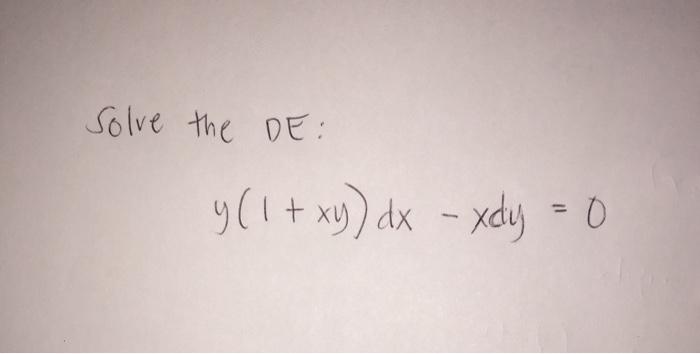 Solve the DE:
y(1 + xy)dx - xdy = 0